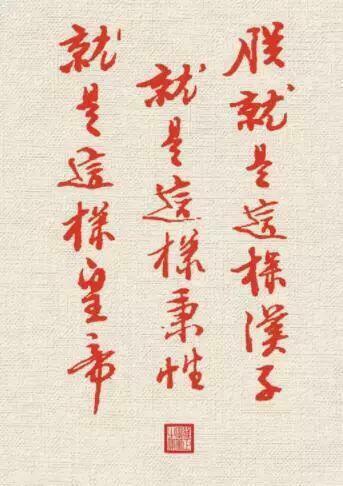 朕就是這樣漢子
就是這樣秉性
就是這樣皇帝